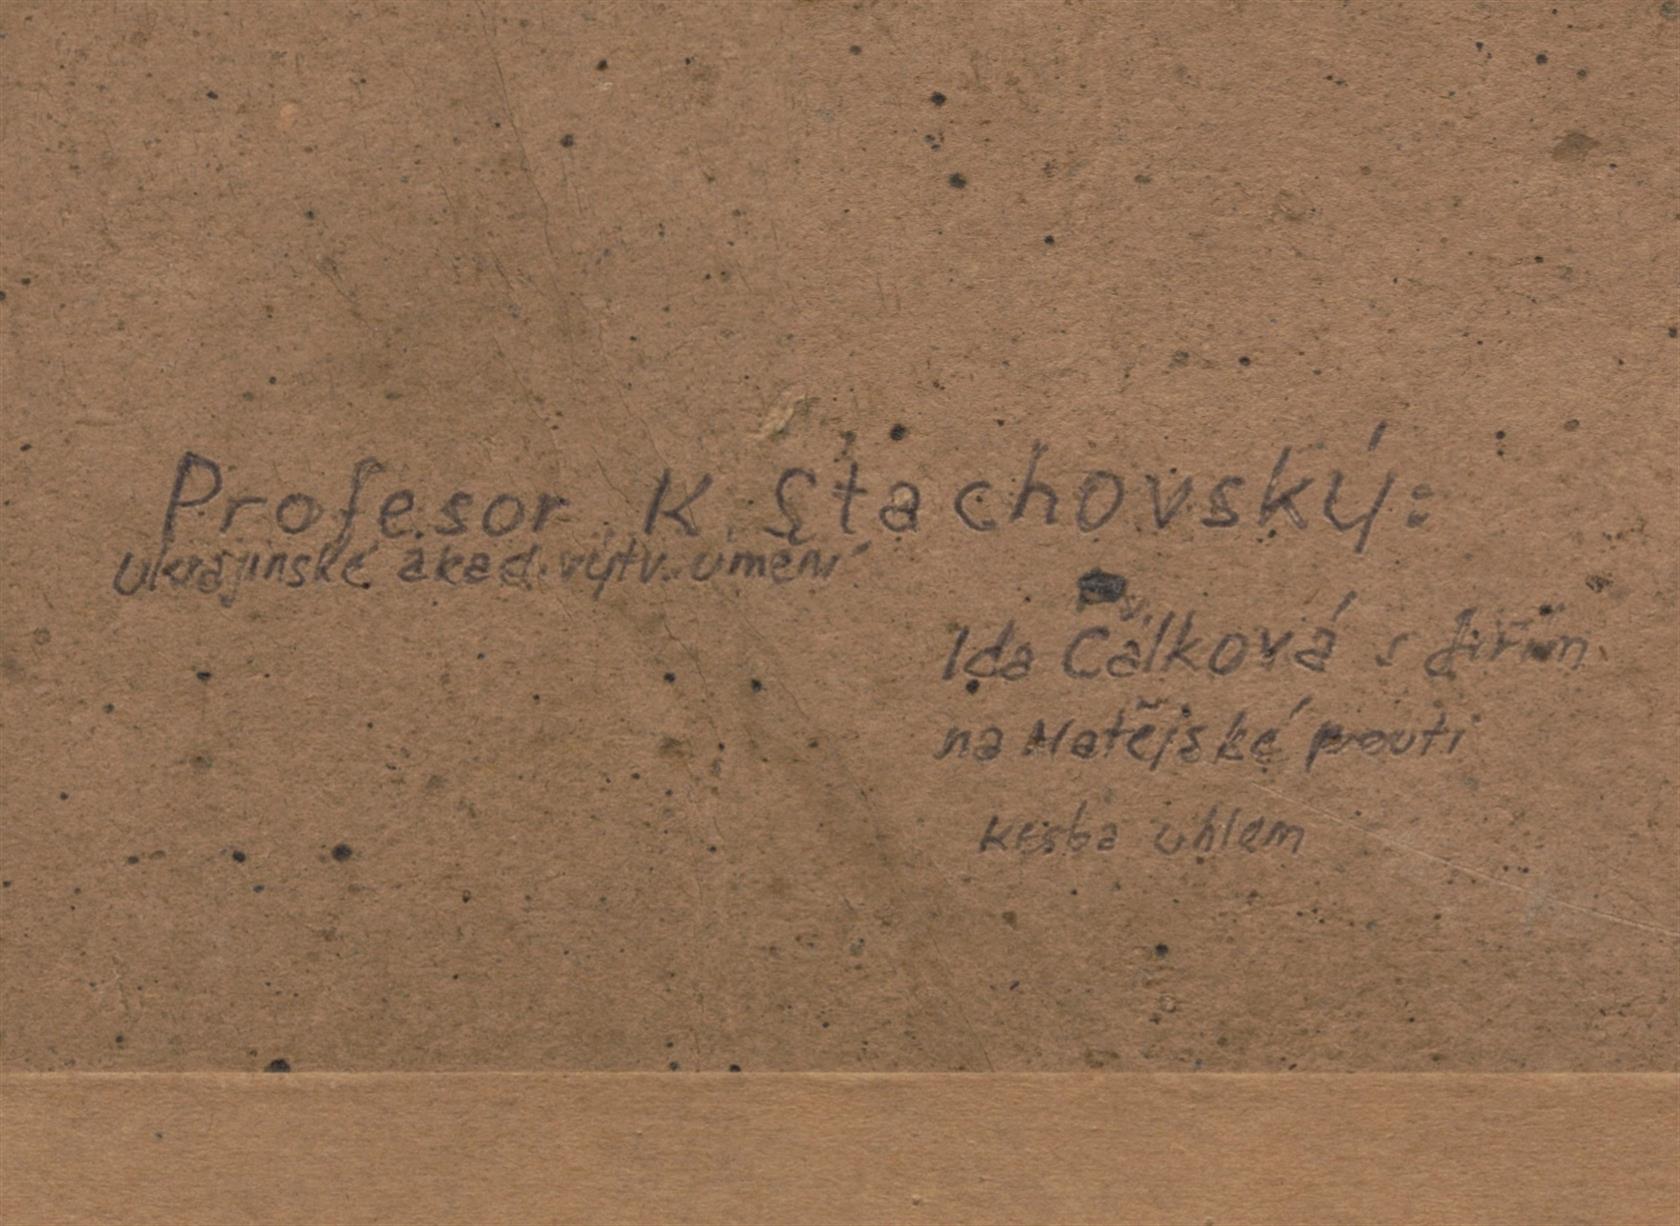 Profesor K. Stachovský:
Ukrajinské akad. výtv. umění
Ida Čálková s Jiřím
na Matějské pouti
kresba uhlem